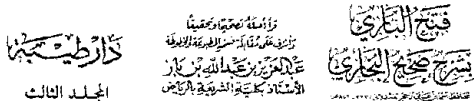 فتح الباري
بشرح صحيح البخاري
قرأ أصله تصحيحا وتحقيقا
وأشرف على مقابلة نسخه المطبوعة والمخطوطة
عبد العزيز بن عبد الله بن باز
الأستاذ بكلية الشريعة بالرياض
دار طيبة
المجلد الثالث